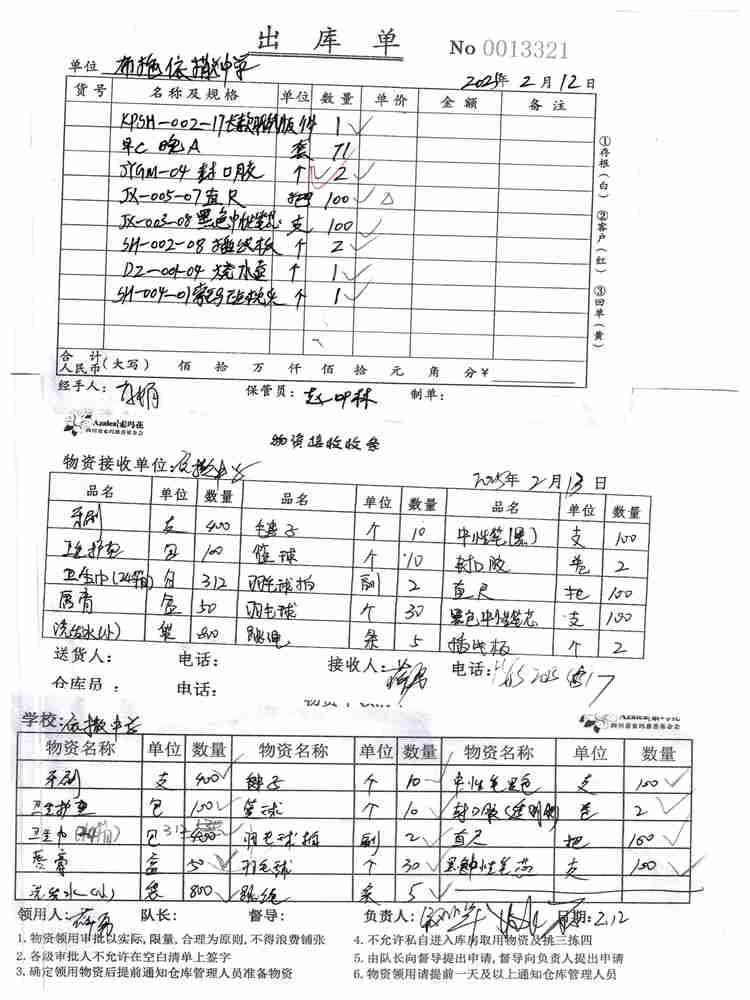 出库单
No 0013321
单位 布拖依撒中学 2025年2月12日
货号 名称及规格 单位 数量 单价 金额 备注
KPSH-002-17 1
早C晚A 套 71
JYGM-04 封口胶 个 2
JX-005-07 直尺 把 100 △
JX-003-08 黑色中性笔芯 支 100
SH-002-08 插线板 个 2
DZ-001-04 烧水壶 个 1
SH-004-01 个 1
①存根(白) ②客户(红) ③回单(黄)
合计人民币(大写) 佰 拾 万 仟 佰 拾 元 角 分¥
经手人: 保管员: 制单:
Azalea|索玛花
四川省索玛慈善基金会
物资接收收条
物资接收单位: 依撒中学 2025年2月13日
品名 单位 数量 品名 单位 数量 品名 单位 数量
牙刷 支 400 毽子 个 10 中性笔(黑) 支 100
卫生护垫 包 100 篮球 个 10 封口胶 卷 2
卫生巾(24箱) 包 312 羽毛球拍 副 2 直尺 把 100
唇膏 盒 50 羽毛球 个 30 黑色中性笔芯 支 100
洗发水(小) 袋 800 跳绳 条 5 插线板 个 2
送货人: 电话: 接收人: 电话:
仓库员: 电话:
学校: 依撒中学
四川省索玛慈善基金会
物资名称 单位 数量 物资名称 单位 数量 物资名称 单位 数量
牙刷 支 400 毽子 个 10 中性笔黑色 支 100
卫生护垫 包 100 篮球 个 10 封口胶(透明) 卷 2
卫生巾(24箱) 包 312 羽毛球拍 副 2 直尺 把 100
唇膏 盒 50 羽毛球 个 30 黑色中性笔芯 支 100
洗发水(小) 袋 800 跳绳 条 5
领用人: 队长: 督导: 负责人: 日期: 2.12
1. 物资领用审批以实际,限量,合理为原则,不得浪费铺张
4. 不允许私自进入库房取用物资及挑三拣四
2. 各级审批人不允许在空白清单上签字
5. 由队长向督导提出申请,督导向负责人提出申请
3. 确定领用物资后提前通知仓库管理人员准备物资
6. 物资领用请提前一天及以上通知仓库管理人员